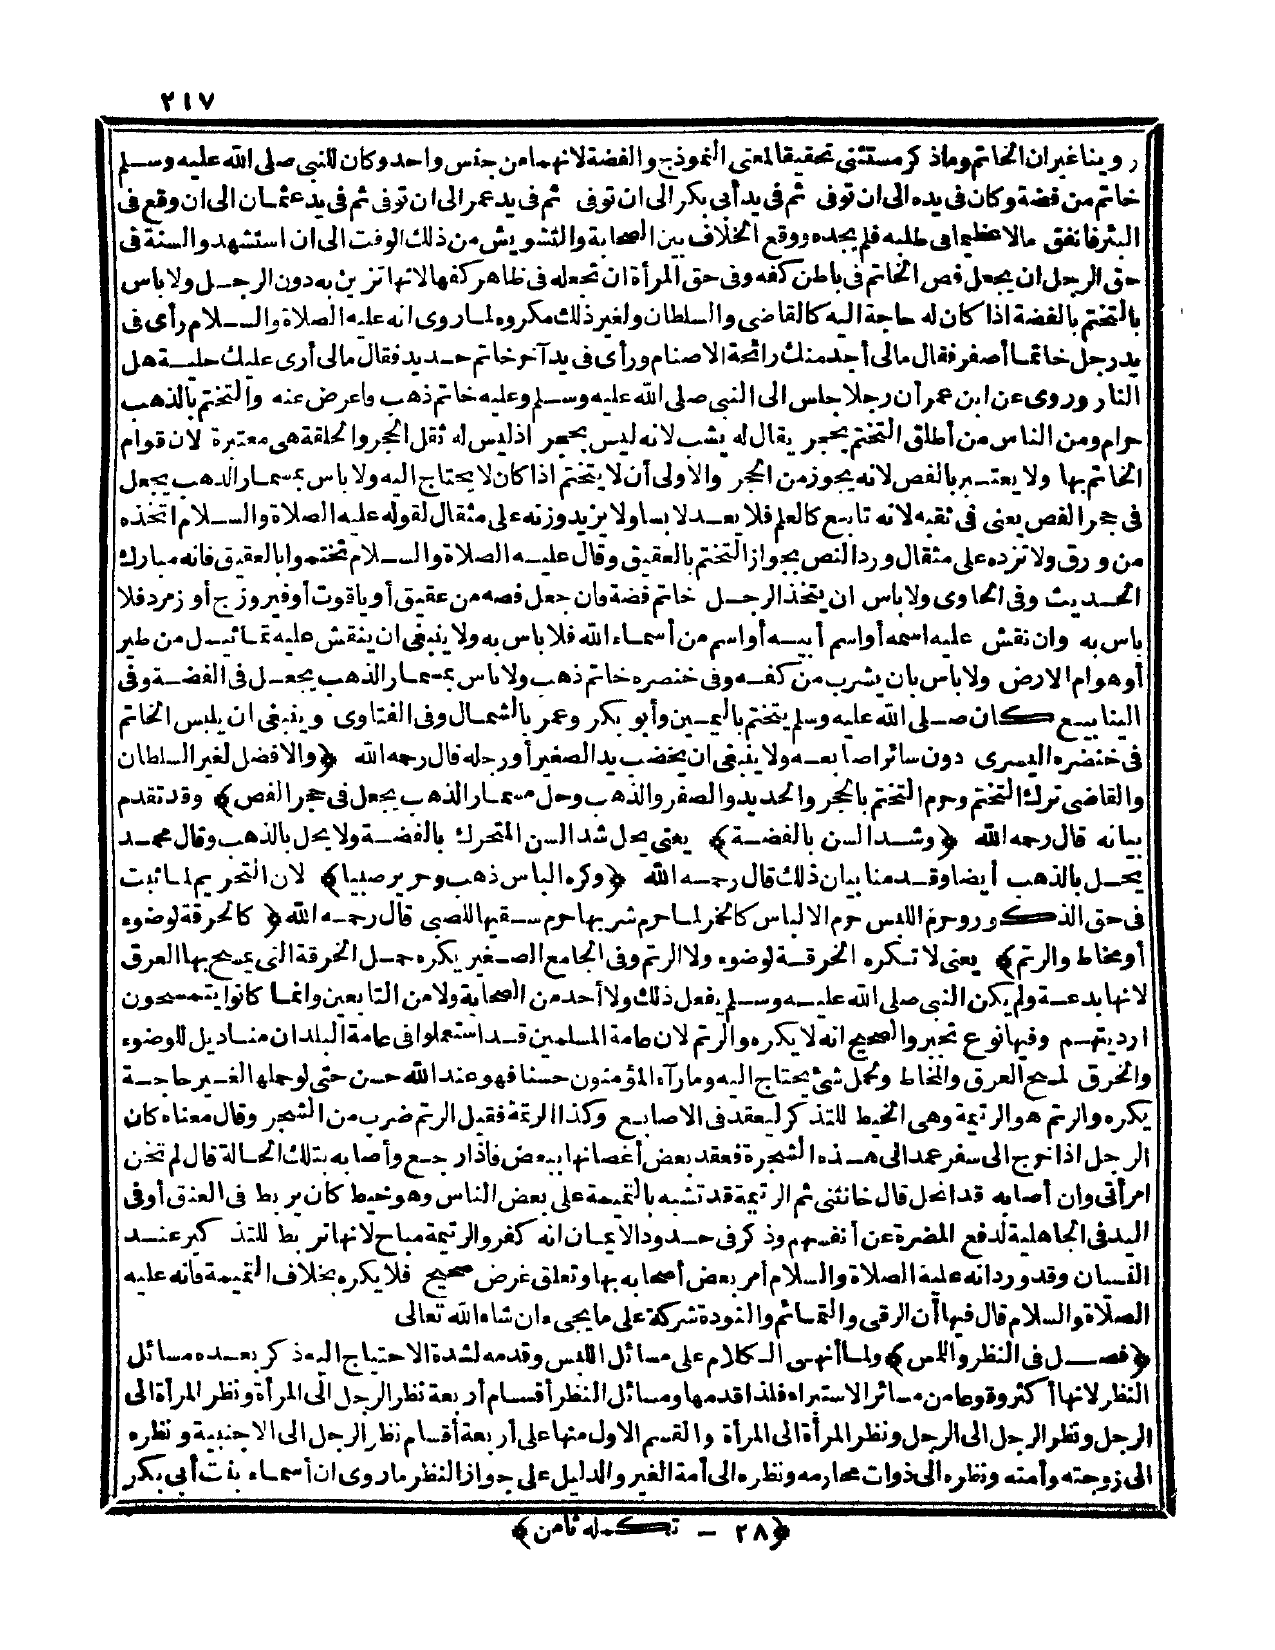 ٢١٧
روينا غير ان الخاتم وما ذكر مستثنى تحقيقا لمعنى النموذج والفضة لانهما من جنس واحد وكان للنبى صلى الله عليه وسلم
خاتم من فضة وكان فى يده الى ان توفى ثم فى يد أبى بكر الى ان توفى ثم فى يد عمر الى ان توفى ثم فى يد عثمان الى ان وقع فى
البئر فانفق مالا عظيما فى طلبه فلم يجده ووقع الخلاف بين الصحابة والتشويش من ذلك الوقت الى ان استشهد والسنة فى
حق الرجل ان يجعل فص الخاتم فى باطن كفه وفى حق المرأة ان تجعله فى ظاهر كفها لانها تزين به دون الرجل ولا باس
بالتختم بالفضة اذا كان له حاجة اليه كالقاضى والسلطان ولغير ذلك مكروه لما روى انه عليه الصلاة والسلام رأى فى
يد رجل خاتما أصفر فقال مالى أجد منك رائحة الاصنام ورأى فى يد آخر خاتم حديد فقال مالى أرى عليك حلية هل
النار وروى عن ابن عمر أن رجلا جلس الى النبى صلى الله عليه وسلم وعليه خاتم ذهب فاعرض عنه والتختم بالذهب
حرام ومن الناس من أطلق التختم بحجر يقال له يشب لانه ليس بحجر اذ ليس له ثقل الحجر والحلقة هى معتبرة لان قوام
الخاتم بها ولا يعتبر بالفص لانه يجوز من الحجر والاولى أن لا يتختم اذا كان لا يحتاج اليه ولا باس بمسمار الذهب يجعل
فى حجر الفص يعنى فى ثقبه لانه تابع كالعلم فلا يعد لابسا ولا يزيد وزنه على مثقال لقوله عليه الصلاة والسلام اتخذه
من ورق ولا تزده على مثقال ورد النص بجواز التختم بالعقيق وقال عليه الصلاة والسلام تختموا بالعقيق فانه مبارك
الحديث وفى الحاوى ولا باس ان يتخذ الرجل خاتم فضة فان جعل فصه من عقيق أو ياقوت أو فيروزج أو زمرد فلا
باس به وان نقش عليه اسمه أو اسم أبيه أو اسم من أسماء الله فلا باس به ولا ينبغى ان ينقش عليه تماثيل من طير
أو هوام الارض ولا باس بان يشرب من كفه وفى خنصره خاتم ذهب ولا باس بمسمار الذهب يجعل فى الفضة وفى
الينابيع كان صلى الله عليه وسلم يتختم باليمين وأبو بكر وعمر بالشمال وفى الفتاوى وينبغى ان يلبس الخاتم
فى خنصره اليسرى دون سائر اصابعه ولا ينبغى ان يخضب يد الصغير أو رجله قال رحمه الله ﴿والافضل لغير السلطان
والقاضى ترك التختم وحرم التختم بالحجر والحديد والصفر والذهب وحل مسمار الذهب يجعل فى حجر الفص﴾ وقد تقدم
بيانه قال رحمه الله ﴿وشد السن بالفضة﴾ يعنى يحل شد السن المتحرك بالفضة ولا يحل بالذهب وقال محمد
يحل بالذهب أيضا وقدمنا بيان ذلك قال رحمه الله ﴿وكره الباس ذهب وحرير صبيا﴾ لان التحريم لما ثبت
فى حق الذكور وحرم اللبس حرم الالباس كالخمر لما حرم شربها حرم سقيها للصبى قال رحمه الله ﴿كالخرقة لوضوء
أو مخاط والرتم﴾ يعنى لا تكره الخرقة لوضوء ولا الرتم وفى الجامع الصغير يكره حمل الخرقة التى يمسح بها العرق
لانها بدعة ولم يكن النبى صلى الله عليه وسلم يفعل ذلك ولا أحد من الصحابة ولا من التابعين وانما كانوا يتمسحون
ارديتهم وفيها نوع تجبر والصحيح انه لا يكره والرتم لان عامة المسلمين قد استعملوا فى عامة البلدان مناديل للوضوء
والخرق لمسح العرق والمخاط وتحمل شئ يحتاج اليه وما رآه المؤمنون حسنا فهو عند الله حسن حتى لو حملها لغير حاجة
يكره والرتم هو الرتيمة وهى الخيط للتذكر ليعقد فى الاصابع وكذا الرتمة فقيل الرتم ضرب من الشجر وقال معناه كان
الرجل اذا خرج الى سفر عمد الى هذه الشجرة فعقد بعض أغصانها ببعض فاذا رجع وأصابه بتلك الحالة قال لم تخن
امرأتى وان أصابه قد انحل قال خانتنى ثم الرتيمة قد تشبه بالتميمة على بعض الناس وهو خيط كان يربط فى العنق أو فى
اليد فى الجاهلية لدفع المضرة عن أنفسهم وذكر فى حدود الايمان انه كفر والرتيمة مباح لانها تربط للتذكير عند
النسيان وقد ورد انه عليه الصلاة والسلام أمر بعض أصحابه بها وتعلق غرض صحيح فلا يكره بخلاف التميمة فانه عليه
الصلاة والسلام قال فيها أن الرقى والتمائم والتودة شركة على ما يجىء ان شاء الله تعالى
﴿فصل فى النظر واللمس﴾ ولما أنهى الكلام على مسائل اللبس وقدمه لشدة الاحتياج اليه ذكر بعده مسائل
النظر لانها أكثر وقوعا من مسائر الاستبراء فلذا قدمها ومسائل النظر أقسام أربعة نظر الرجل الى المرأة ونظر المرأة الى
الرجل ونظر الرجل الى الرجل ونظر المرأة الى المرأة والقسم الاول منها على أربعة أقسام نظر الرجل الى الاجنبية ونظره
الى زوجته وأمته ونظره الى ذوات محارمه ونظره الى أمة الغير والدليل على جواز النظر ما روى ان أسماء بنت أبى بكر
﴿٢٨ – تكمله ثامن﴾